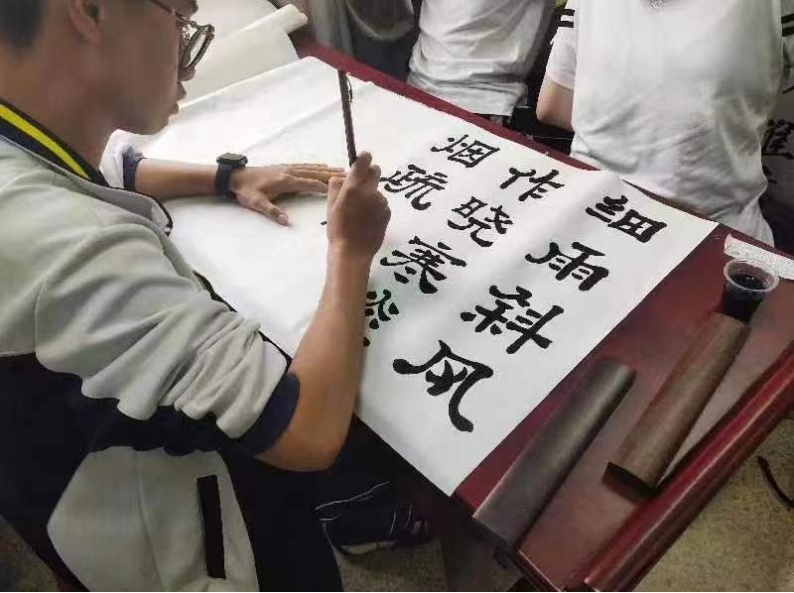 细雨斜风
作晓寒淡
烟疏